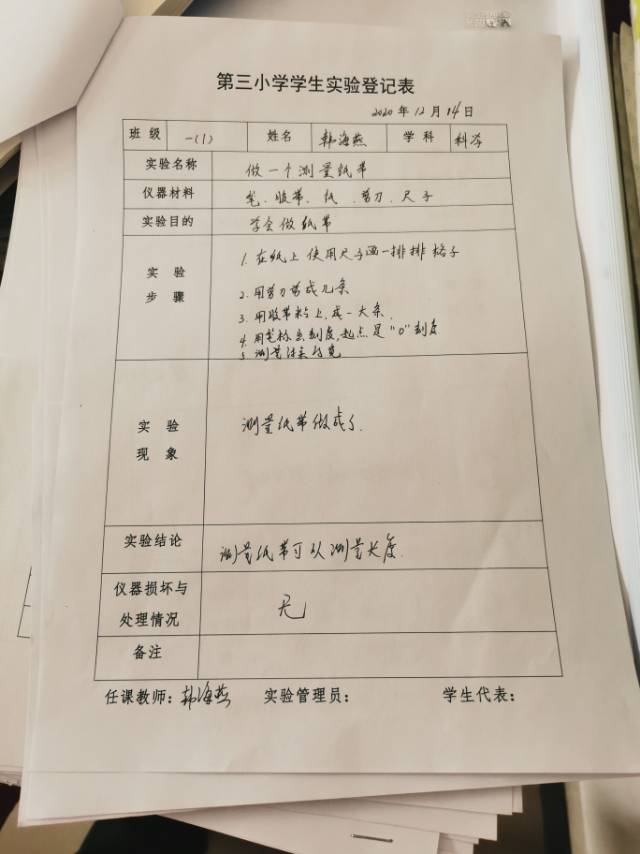 第三小学学生实验登记表
2020年12月14日
班级 一(1) 姓名 韩海燕 学科 科学
实验名称 做一个测量纸带
仪器材料 笔、胶带、纸、剪刀、尺子
实验目的 学会做纸带
实验步骤
1. 在纸上使用尺子画一排排格子
2. 用剪刀剪成几条
3. 用胶带粘上,成一大条.
4. 用笔标出刻度,起点是"0"刻度
5. 测量
实验现象
测量纸带做成了.
实验结论 测量纸带可以测量长度.
仪器损坏与
处理情况 无
备注
任课教师:韩海燕 实验管理员: 学生代表: